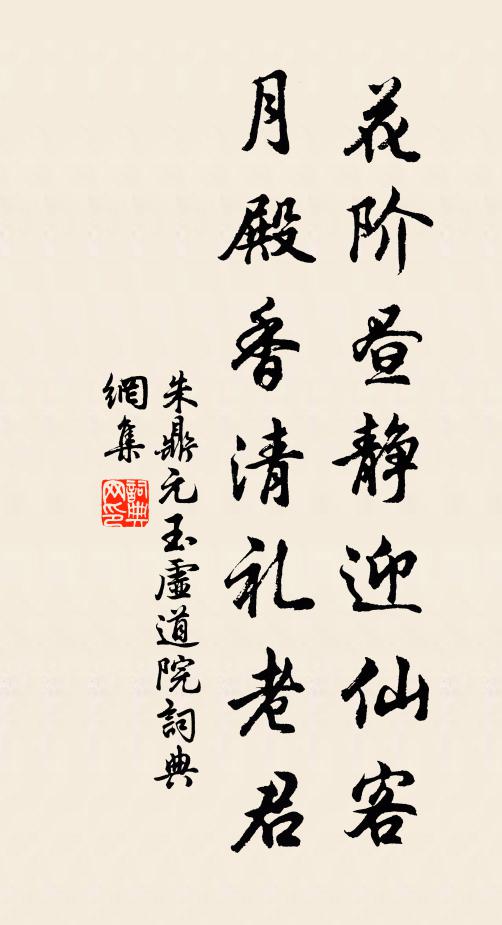 花阶昼静迎仙客
月殿香清礼老君
朱鼎元玉虚道院詞典
網集
詞典
网印